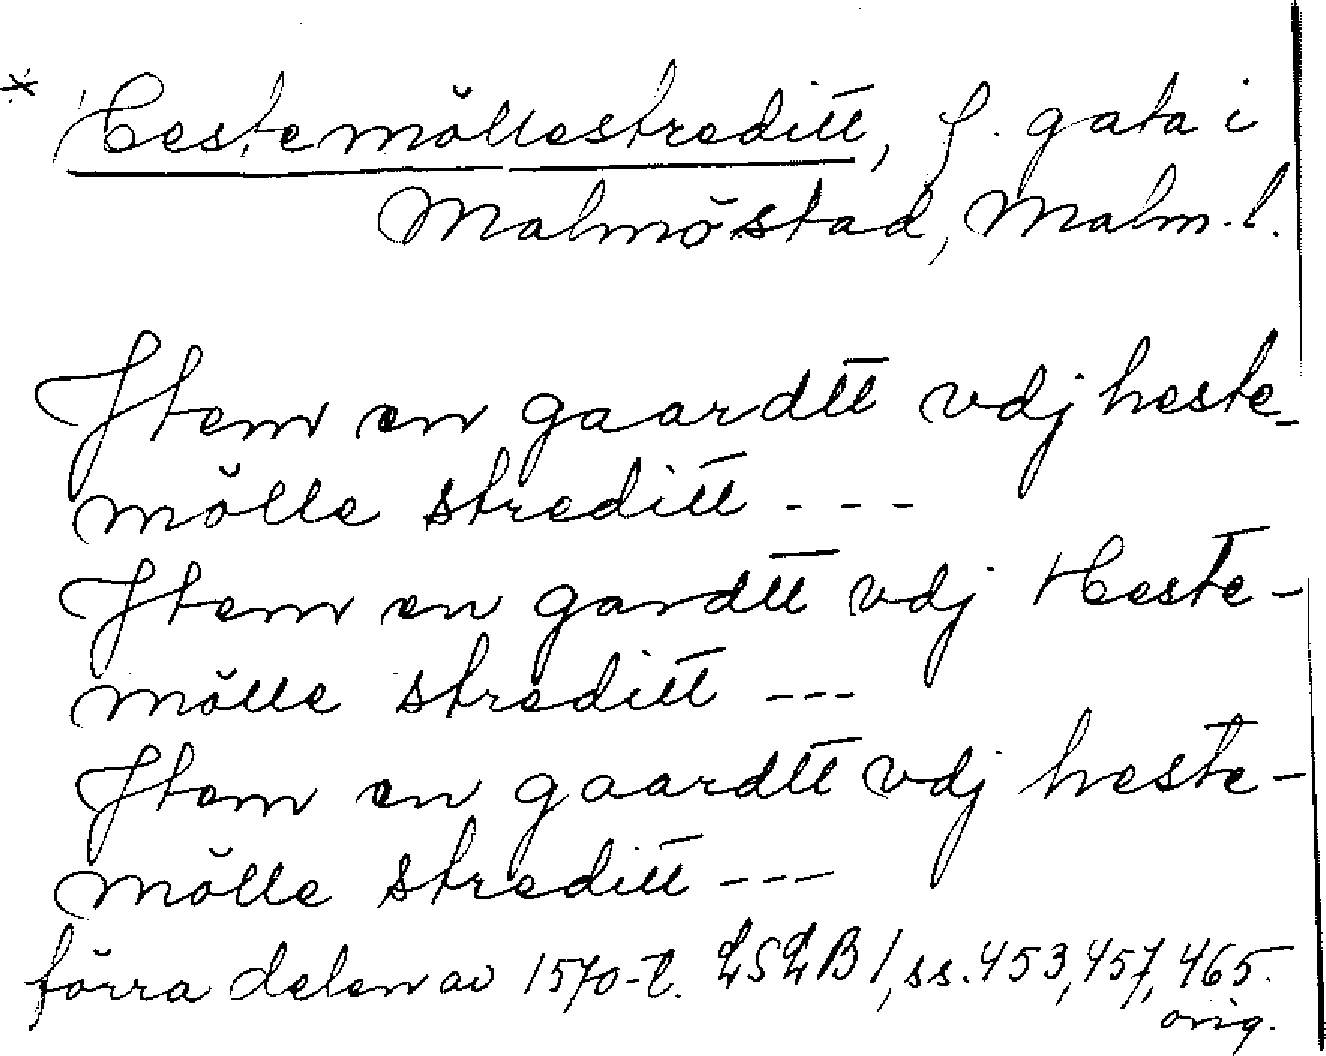 * Hestemöllestreditt, f. gata i
Malmö stad, Malm. l.
Jtem en gaardtt vdj heste-
mölle streditt - - -
Jtem en gardtt vdj Heste-
mölle streditt - - -
Jtem en gaardtt vdj heste-
mölle streditt - - -
förra delen av 1570-t. LSLB 1, ss. 453, 457, 465.
orig.